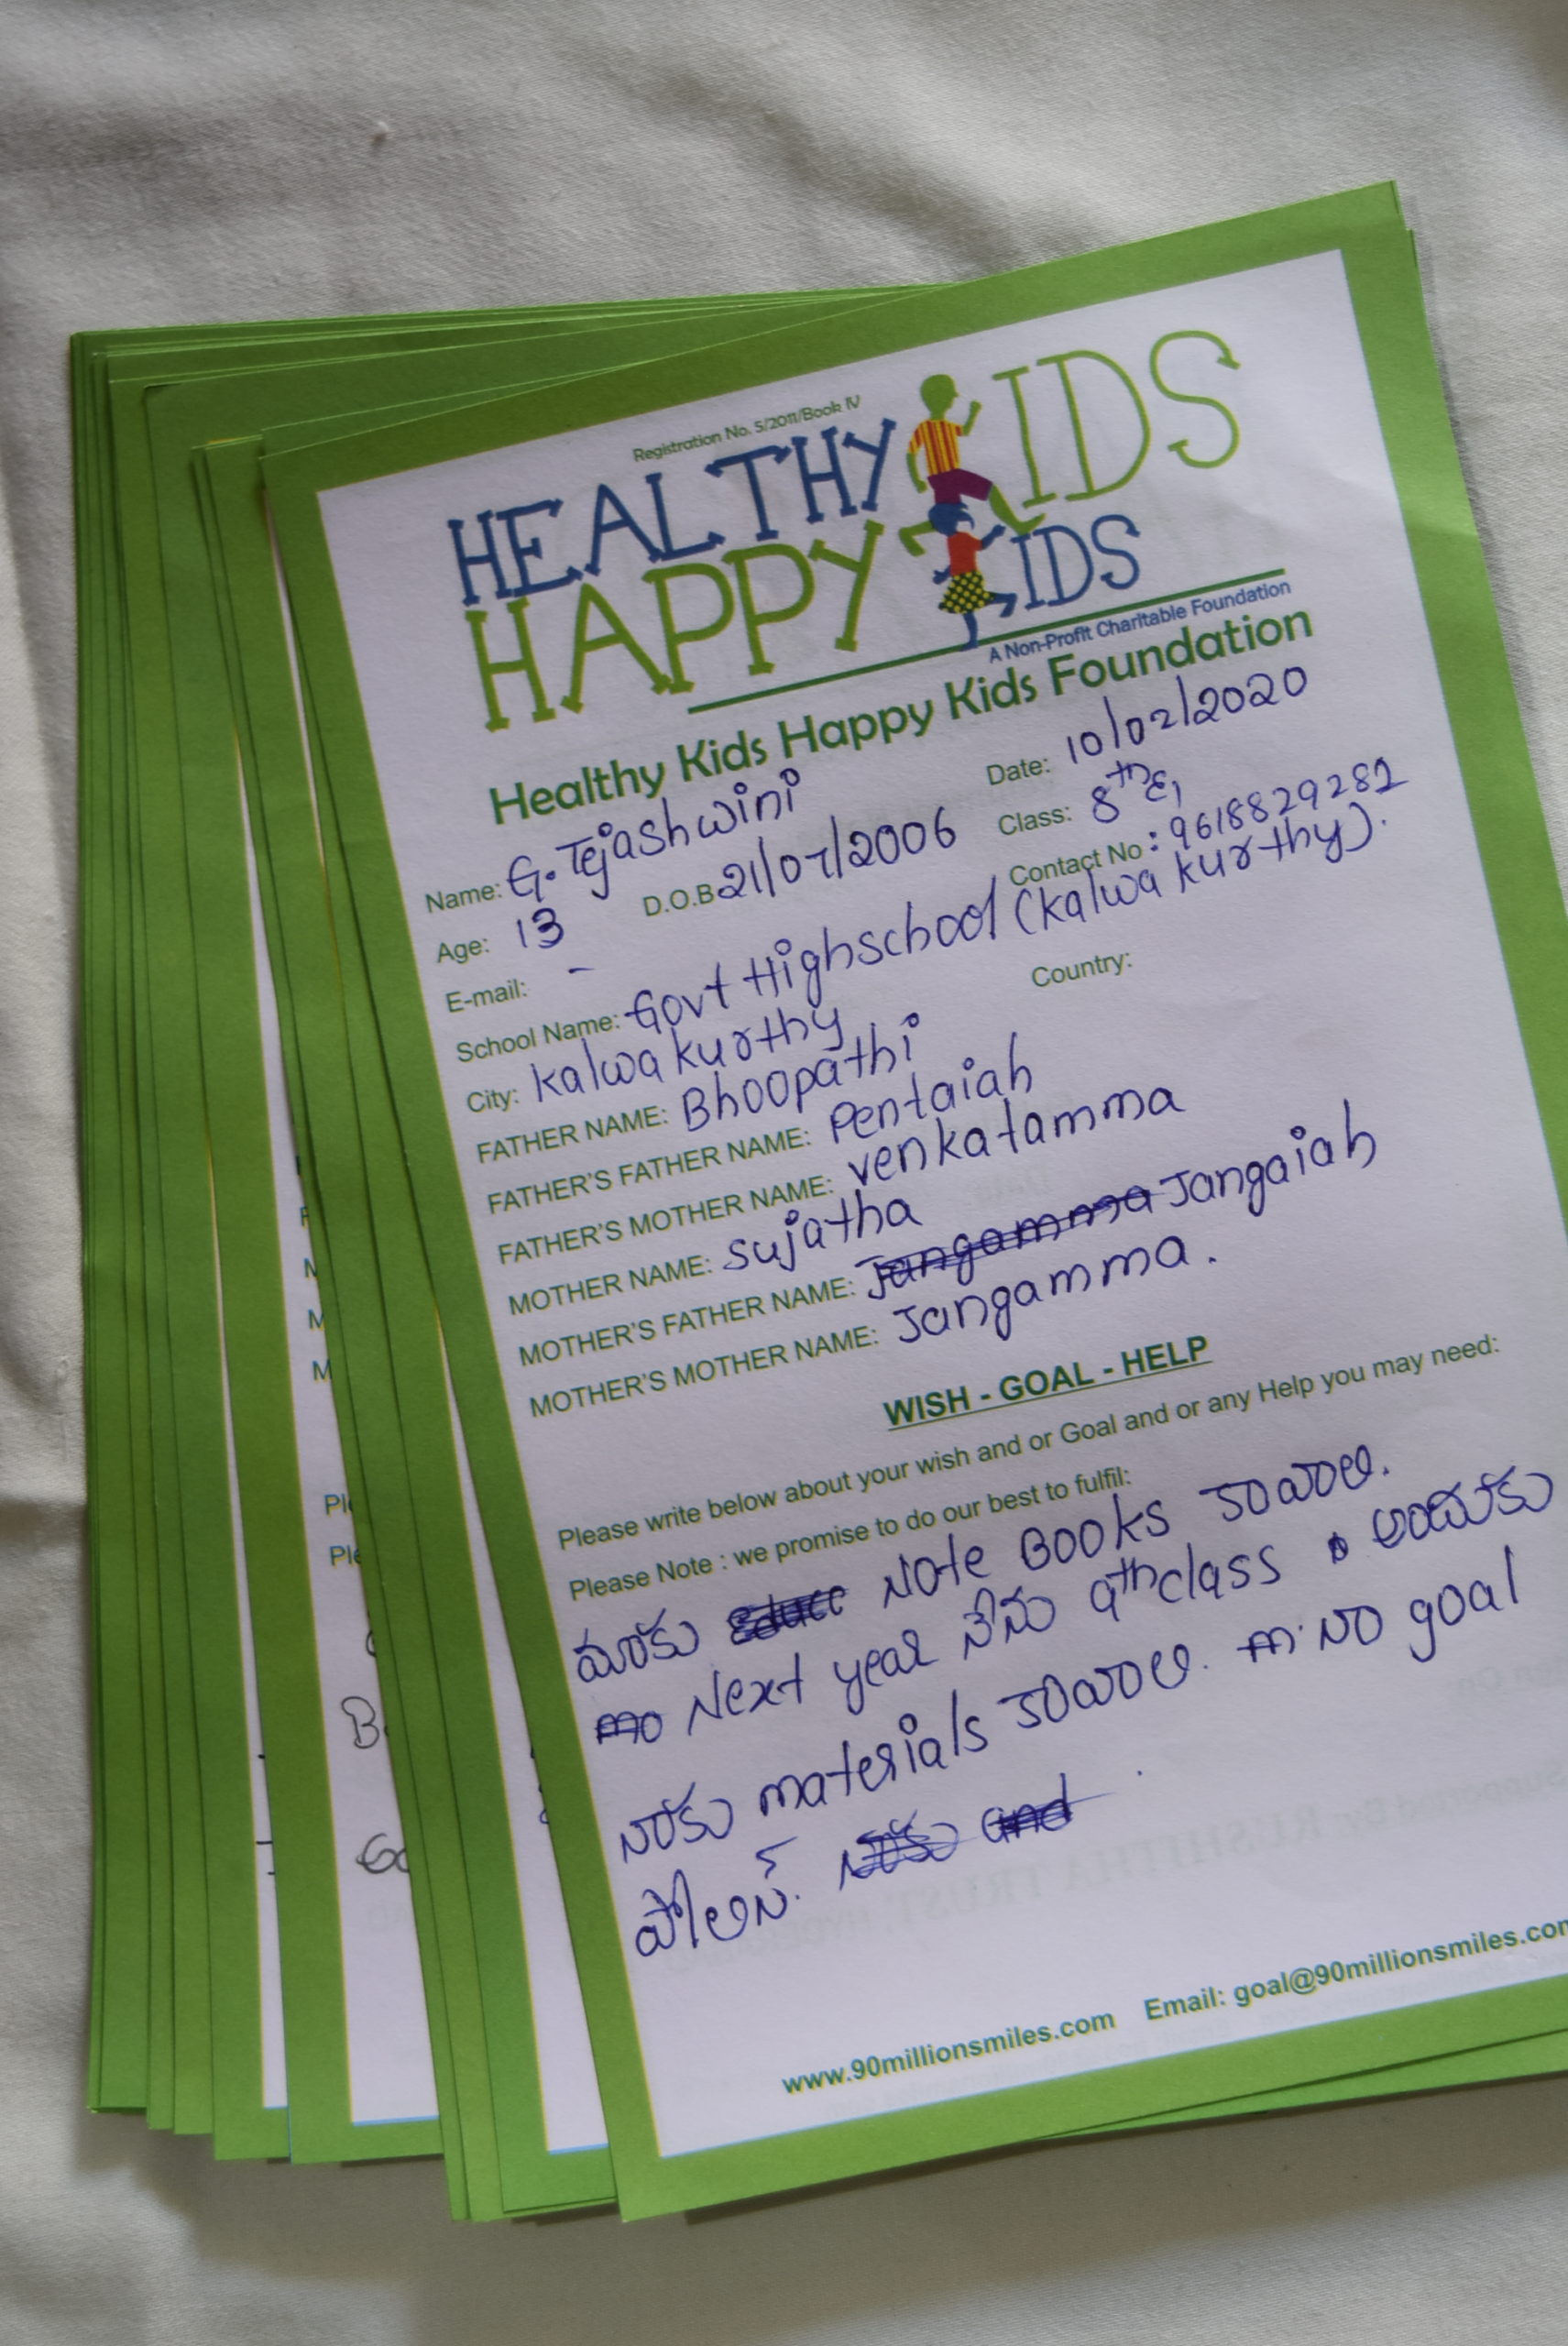 Registration No. 5/2011/Book IV
HEALTHY KIDS
HAPPY KIDS
A Non-Profit Charitable Foundation
Healthy Kids Happy Kids Foundation
Date: 10/02/2020
Name: G. Tejashwini
Class: 8th E,
Age: 13 D.O.B 21/07/2006
Contact No : 9618829282
E-mail: -
School Name: Govt Highschool (kalwa kurthy).
City: kalwa kurthy Country:
FATHER NAME: Bhoopathi
FATHER'S FATHER NAME: Pentaiah
FATHER'S MOTHER NAME: venkatamma
MOTHER NAME: sujatha
MOTHER'S FATHER NAME: Jangamma Jangaiah
MOTHER'S MOTHER NAME: Jangamma.
WISH - GOAL - HELP
Please write below about your wish and or Goal and or any Help you may need:
Please Note : we promise to do our best to fulfil:
మాకు Note Books కావాలి.
Next year నేను 9th class అందుకు
నాకు materials కావాలి. నా goal
పోలీస్. నాకు and
www.90millionsmiles.com Email: goal@90millionsmiles.com